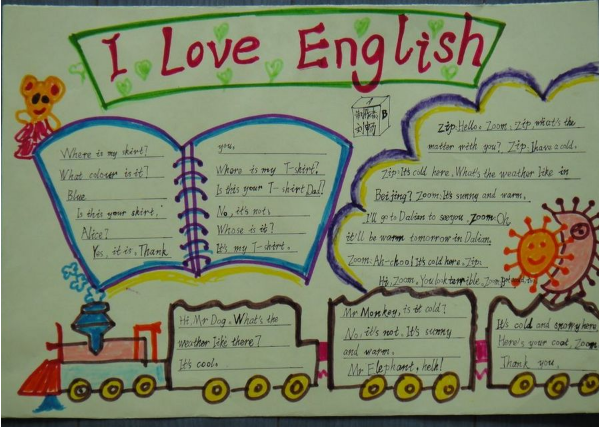 I Love English
Where is my skirt?
What colour is it?
Blue
Is this your skirt,
Alice?
Yes, it is, Thank
you,
Where is my T-shirt?
Is this your T-shirt Dad?
No, it's not,
Whose is it?
It's my T-shirt.
A
B
Zip: Hello, Zoom, Zip, what's the
matter with you? Zip: I have a cold.
Zip: It's cold here, What's the weather like in
Beijing? Zoom: It's sunny and warm,
I'll go to Dalian to see you, Zoom: Oh,
it'll be warm tomorrow in Dalian.
Zoom: Ah-choo! It's cold here, Zip.
Hi, Zoom, You look terrible,
Hi, Mr Dog, What's the
weather like there?
It's cool.
Mr Monkey, is it cold?
No, it's not, It's sunny
and warm.
Mr Elephant, hello!
It's cold and snowy here,
Here's your coat, Zoom
Thank you,